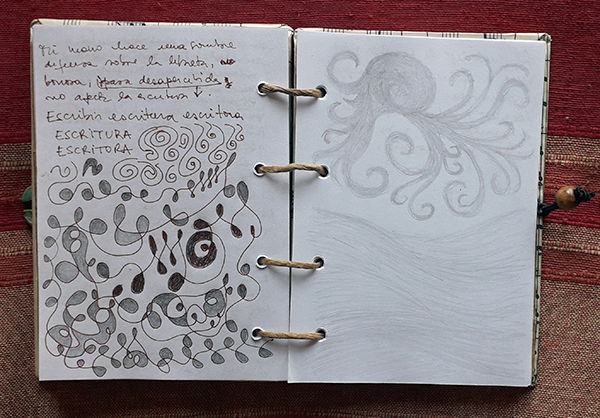 Mi mano hace una sombra
difusa sobre la libreta, no
borrosa, pasa desapercibida y
no afecta la escritura ↓
Escribir escritura escritora
ESCRITURA
ESCRITORA